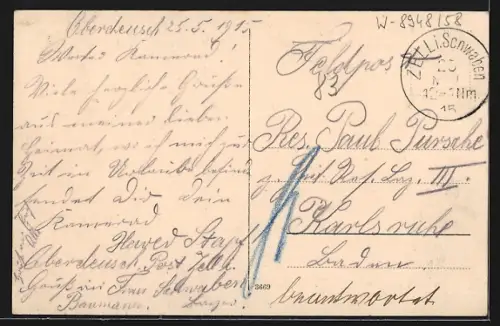 W-8948/58
Oberdeusch 25.5.1915
Wertes Kamerad!
Viele herzliche Grüsse
aus meiner lieben
Heimat, wo ich mich zur
Zeit in Urlaube befinde
sendet Dir dein
Kamerad
Stapf
Oberdeusch Post Zell i.
Gruß in Schwaben
Baumann
Feldpost
83
ZELL i. Schwaben
Nm.
15
Res. Paul Pursche
z. Zeit Res. Laz. III.
Karlsruhe
Baden
beantwortet
3469